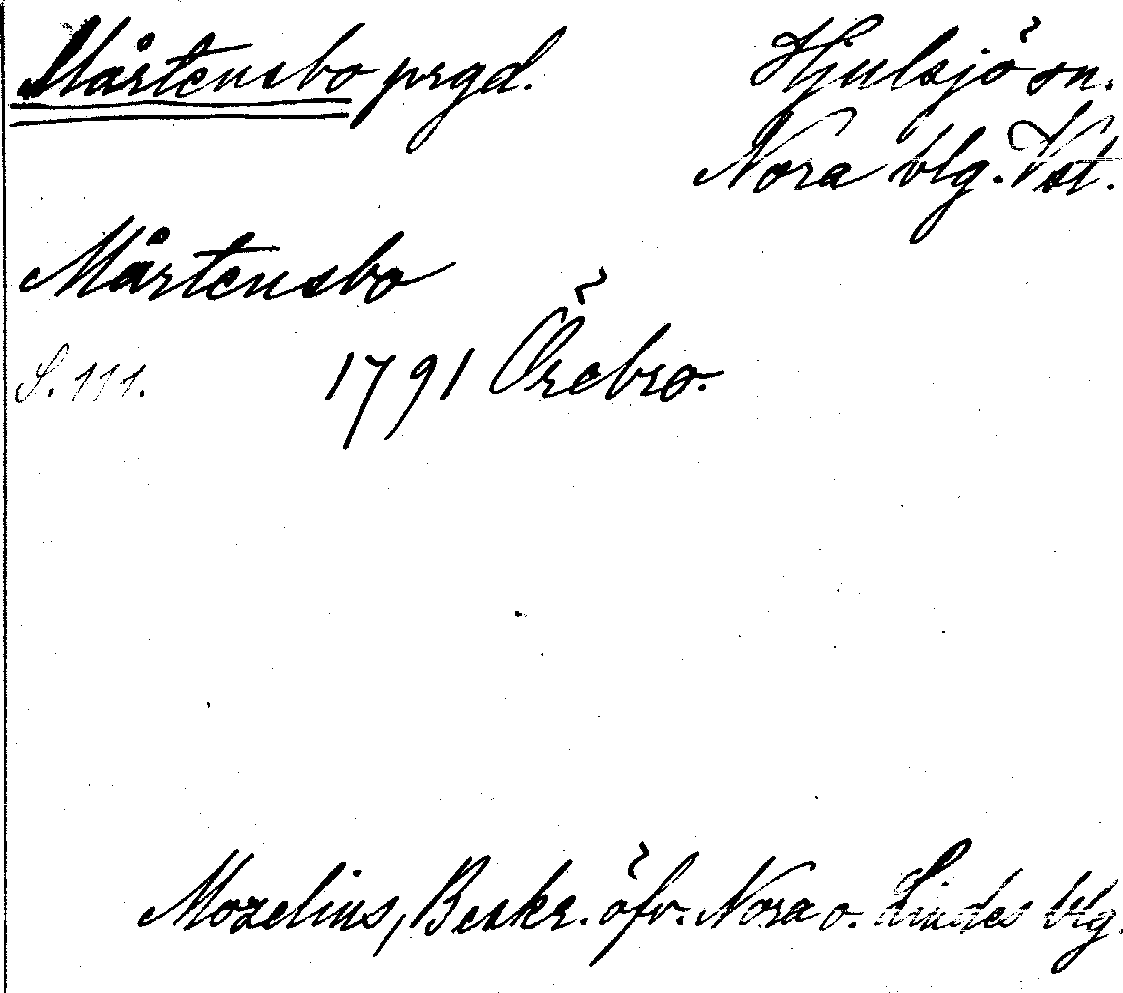 Mårtensbo prgd.
Hjulsjö sn.
Nora blg. Vstm.
Mårtensbo
S. 111.
1791 Örebro.
Mozelius, Beskr. öfv. Nora o. Lindes blg.